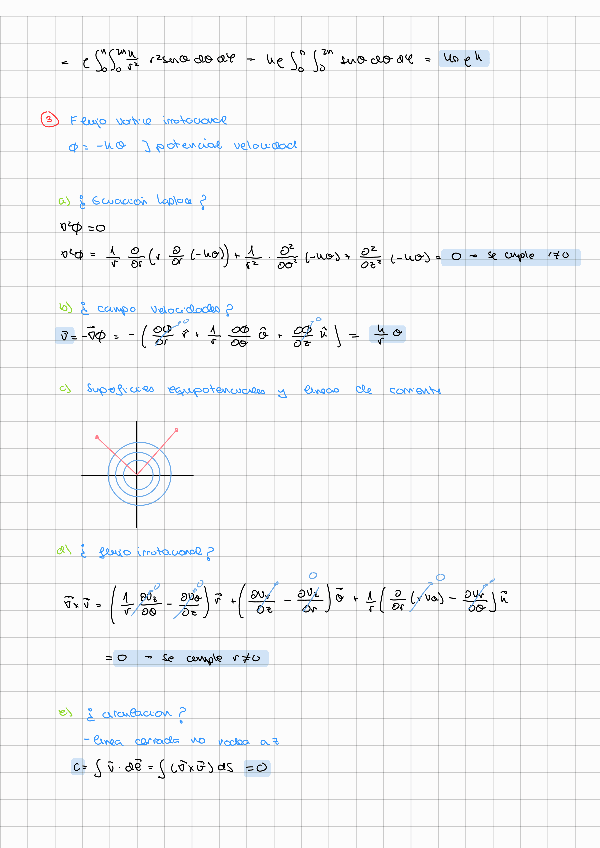 = ρ ∫₀^π ∫₀^2π k/r² r² senθ dθ dφ = kρ ∫₀^π ∫₀^2π senθ dθ dφ = 4πρk
③ Flujo vórtice irrotacional
φ = -kθ } potencial velocidad
a) ¿ Ecuación Laplace ?
∇²φ = 0
∇²φ = 1/r ∂/∂r (r ∂/∂r (-kθ)) + 1/r² · ∂²/∂θ² (-kθ) + ∂²/∂z² (-kθ) = 0 → se cumple r≠0
b) ¿ campo velocidades ?
v̄ = -∇̄φ = - (∂φ/∂r r̂ + 1/r ∂φ/∂θ θ̂ + ∂φ/∂z k̂) = k/r θ̂
c) Superficies equipotenciales y líneas de corriente
d) ¿ flujo irrotacional ?
∇̄×v̄ = (1/r ∂v_z/∂θ - ∂v_θ/∂z) r̄ + (∂v_r/∂z - ∂v_z/∂r) θ̄ + 1/r (∂/∂r (r v_θ) - ∂v_r/∂θ) k̄
= 0 → se cumple r≠0
e) ¿ circulación ?
- línea cerrada no rodea a z
C = ∫ v̄ · dē = ∫ (∇̄×v̄) ds = 0